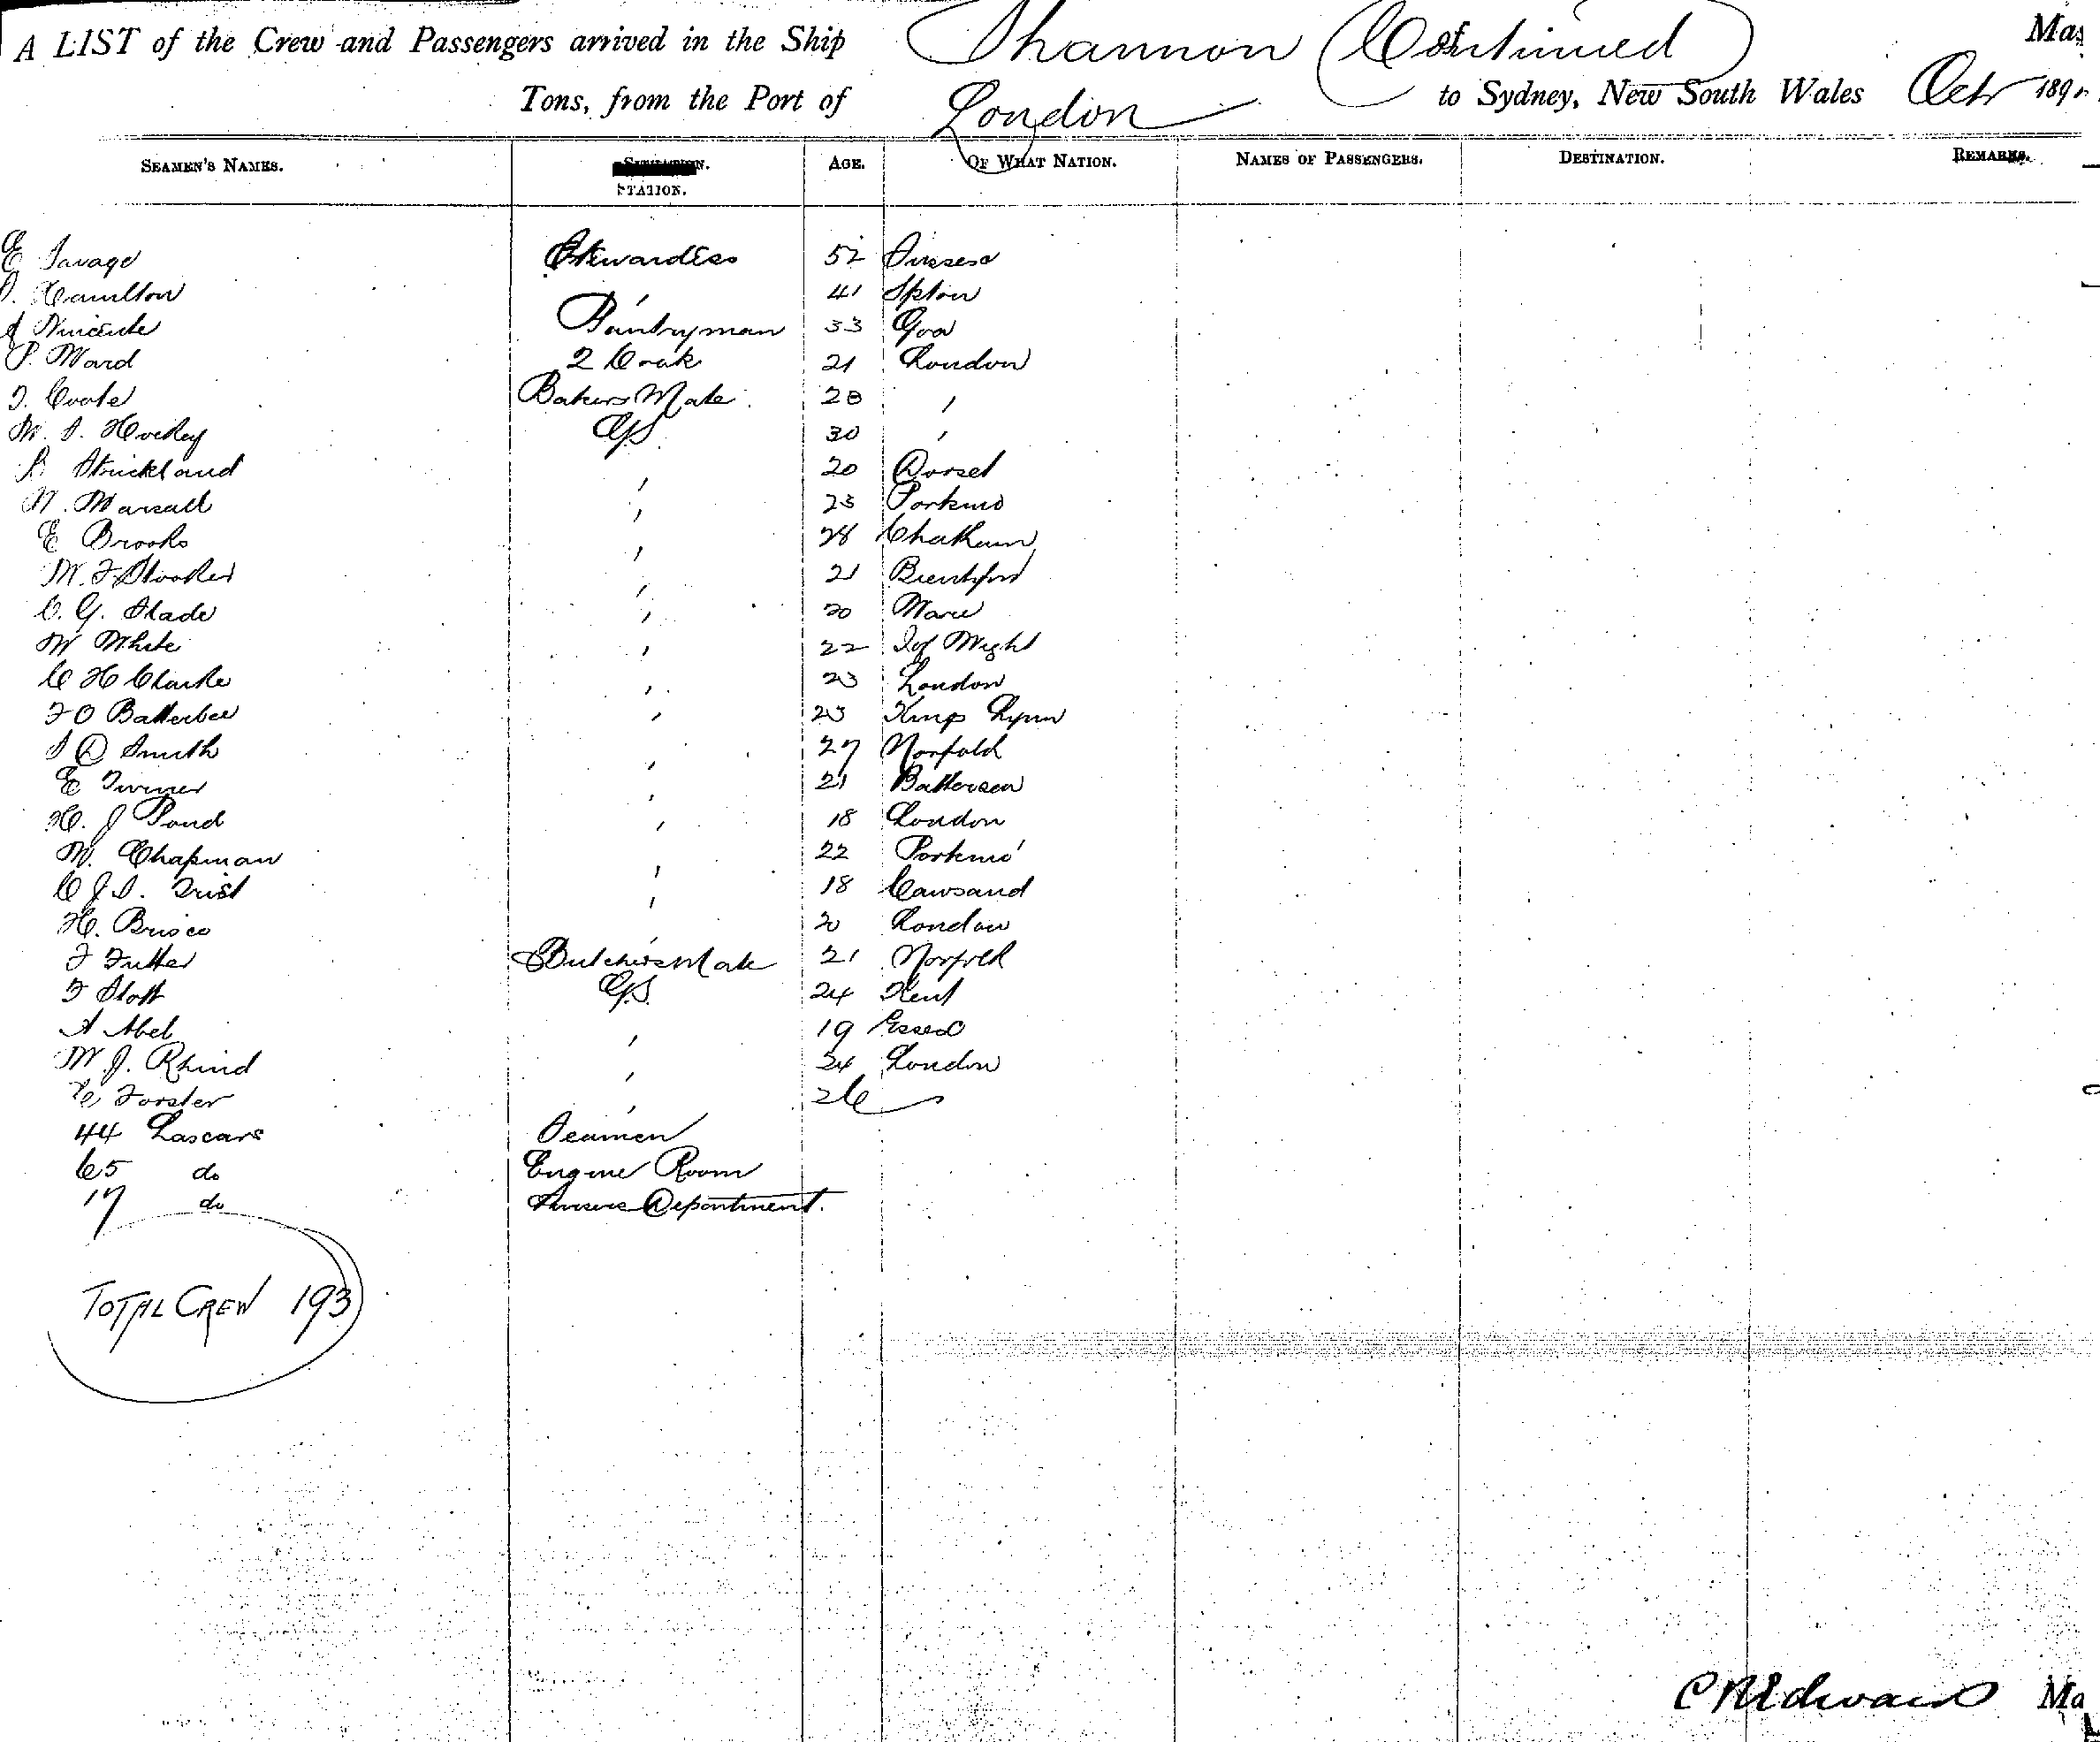 A LIST of the Crew and Passengers arrived in the Ship Shannon (Continued) Mas
Tons, from the Port of London to Sydney, New South Wales Oct 189
SEAMEN'S NAMES. STATION. AGE. OF WHAT NATION. NAMES OF PASSENGERS. DESTINATION. REMARKS.
E Savage Stewardess 52 Sussex
Hamilton " 41 Spton
Vincente Pantryman 33 Goa
P. Ward 2 Cook 21 London
T. Coote Bakers Mate 28 "
W. S. Hockey GS 30 "
Strickland " 20 Dorset
W. Marsall " 23 Portsmo
E Brooks " 28 Chatham
W. F Stooker " 21 Brentford
C. G. Slade " 20 Ware
W White " 22 I of Wight
C H Clarke " 23 London
F O Batterbee " 23 Kings Lynn
S D Smith " 27 Norfolk
E Turner " 21 Battersea
H. J Pond " 18 London
W. Chapman " 22 Portsmo'
C J S. Trist " 18 Cawsand
H. Brisco " 20 London
F Futter Butchers Mate 21 Norfolk
F Stott GS. 24 Kent
A Abel " 19 Essex
W. J. Rhind " 24 London
Forster " 26 "
44 Lascars Seamen
65 do Engine Room
17 do Pursers Department.
TOTAL CREW 193
C R Edwards Ma